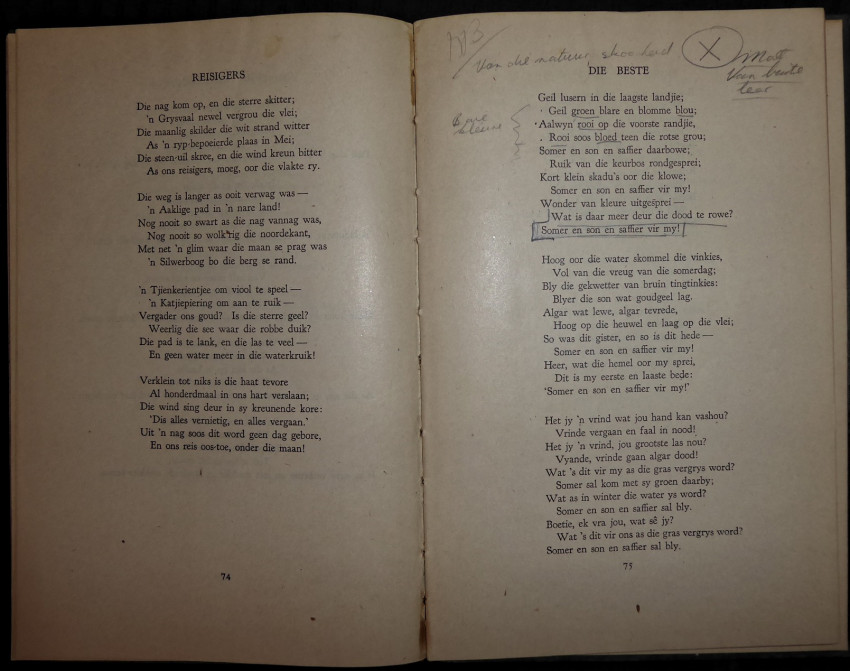 REISIGERS
Die nag kom op, en die sterre skitter;
'n Grysvaal newel vergrou die vlei;
Die maanlig skilder die wit strand witter
As 'n ryp-bepoeierde plaas in Mei;
Die steen-uil skree, en die wind kreun bitter
As ons reisigers, moeg, oor die vlakte ry.
Die weg is langer as ooit verwag was—
'n Aaklige pad in 'n nare land!
Nog nooit so swart as die nag vannag was,
Nog nooit so wolkrig die noordekant,
Met net 'n glim waar die maan se prag was
'n Silwerboog bo die berg se rand.
'n Tjienkerientjee om viool te speel—
'n Katjiepiering om aan te ruik—
Vergader ons goud? Is die sterre geel?
Weerlig die see waar die robbe duik?
Die pad is te lank, en die las te veel—
En geen water meer in die waterkruik!
Verklein tot niks is die haat tevore
Al honderdmaal in ons hart verslaan;
Die wind sing deur in sy kreunende kore:
'Dis alles vernietig, en alles vergaan.'
Uit 'n nag soos dit word geen dag gebore,
En ons reis oos-toe, onder die maan!
74
NB
Van die natuur skoonheid
X
Moet
Voor
leer
DIE BESTE
kleure
Geil lusern in die laagste landjie;
Geil groen blare en blomme blou;
Aalwyn rooi op die voorste randjie,
Rooi soos bloed teen die rotse grou;
Somer en son en saffier daarbowe;
Ruik van die keurbos rondgesprei;
Kort klein skadu's oor die klowe;
Somer en son en saffier vir my!
Wonder van kleure uitgesprei—
Wat is daar meer deur die dood te rowe?
Somer en son en saffier vir my!
Hoog oor die water skommel die vinkies,
Vol van die vreug van die somerdag;
Bly die gekwetter van bruin tingtinkies:
Blyer die son wat goudgeel lag.
Algar wat lewe, algar tevrede,
Hoog op die heuwel en laag op die vlei;
So was dit gister, en so is dit hede—
Somer en son en saffier vir my!
Heer, wat die hemel oor my sprei,
Dit is my eerste en laaste bede:
'Somer en son en saffier vir my!'
Het jy 'n vrind wat jou hand kan vashou?
Vrinde vergaan en faal in nood!
Het jy 'n vrind, jou grootste las nou?
Vyande, vrinde gaan algar dood!
Wat 's dit vir my as die gras vergrys word?
Somer sal kom met sy groen daarby;
Wat as in winter die water ys word?
Somer en son en saffier sal bly.
Boetie, ek vra jou, wat sê jy?
Wat 's dit vir ons as die gras vergrys word?
Somer en son en saffier sal bly.
75